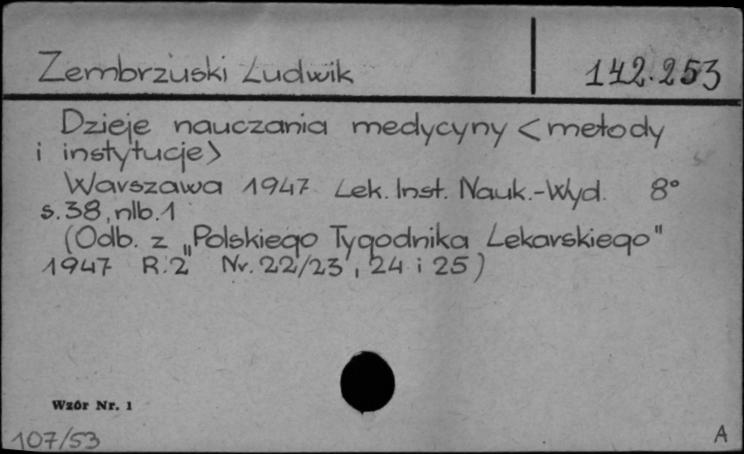 Zembrzuski Ludwik
142.253
Dzieje nauczania medycyny <metody
i instytucje>
Warszawa 1947 Lek. Inst. Nauk.-Wyd. 8°
s.38, nlb.1
(Odb. z „Polskiego Tygodnika Lekarskiego"
1947 R.2 Nr. 22/23, 24 i 25)
Wzór Nr. 1
107/53
A